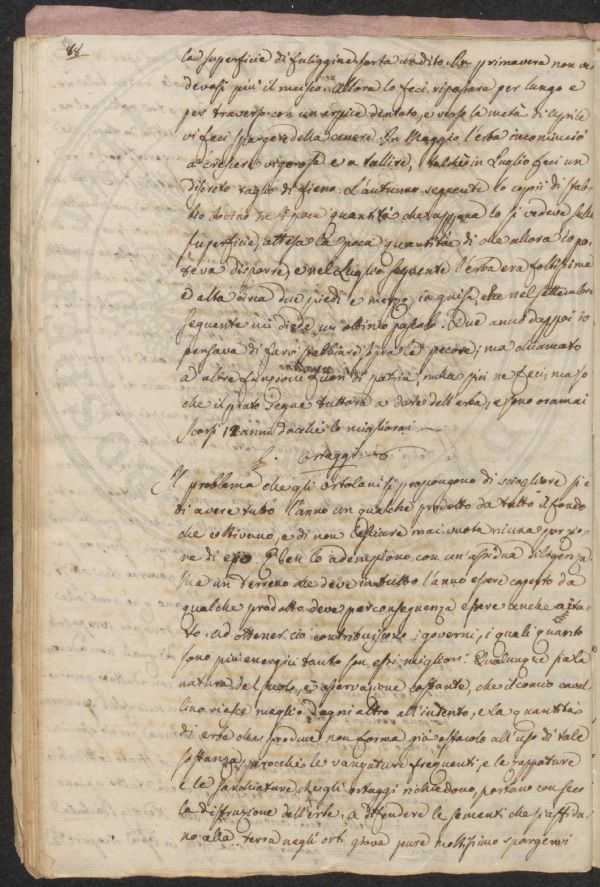 88
la superficie di fuliggine sparta un dito. In primavera non ve-
devasi più il musco. Allora lo feci ripassare per lungo e
per traverso con un erpice dentato, e verso la metà di Aprile
vi feci spargere della cenere. In Maggio l'erba incominciò
a crescere vigorosa e a tallire, talché in Luglio feci un
discreto taglio di fieno. L'autunno seguente lo coprii di stab-
bio bovino in poca quantità che appena lo si vedeva sulla
superficie, attesa la poca quantità di che allora io po-
teva disporre, e nel Luglio seguente l'erba era foltissima
e alta circa due piedi e mezzo, in guisa che nel settembre
seguente mi diede un ottimo pascolo. Due anni dappoi io
pensava di farvi stabbiare sopra le pecore; ma chiamato
a altre funzioni fuori di patria, nulla più ne feci, ma so
che il prato segue tuttora a dare dell'erba, e sono oramai
scorsi 12 anni dacché lo migliorai.
Ortaggi
Il problema che gli ortolani si propongono di sciogliere si è
di avere tutto l'anno un qualche prodotto da tutto il fondo
che coltivano, e di non lasciare mai vuota niuna porzio-
ne di esso. E ben lo adempiono con un'assidua diligenza.
Ma un terreno che deve in tutto l'anno essere coperto da
qualche prodotto deve per conseguenza essere anche aiuta-
to. Ad ottener ciò contribuiscono i governi, i quali quanto
sono più energici tanto son essi migliori. Qualunque sia la
natura del suolo, è osservazione costante, che il concio caval-
lino riesce meglio d'ogni altro all'intento, e la quantità
di erbe che produce non forma già ostacolo all'uso di tale
sostanza, perocché le vangature frequenti, e le zappature
e le sarchiature che gli ortaggi richiedono, portano con seco
la distruzione dell'erbe. A difendere le sementi che si affida-
no alla terra negli orti giova pure moltissimo spargervi